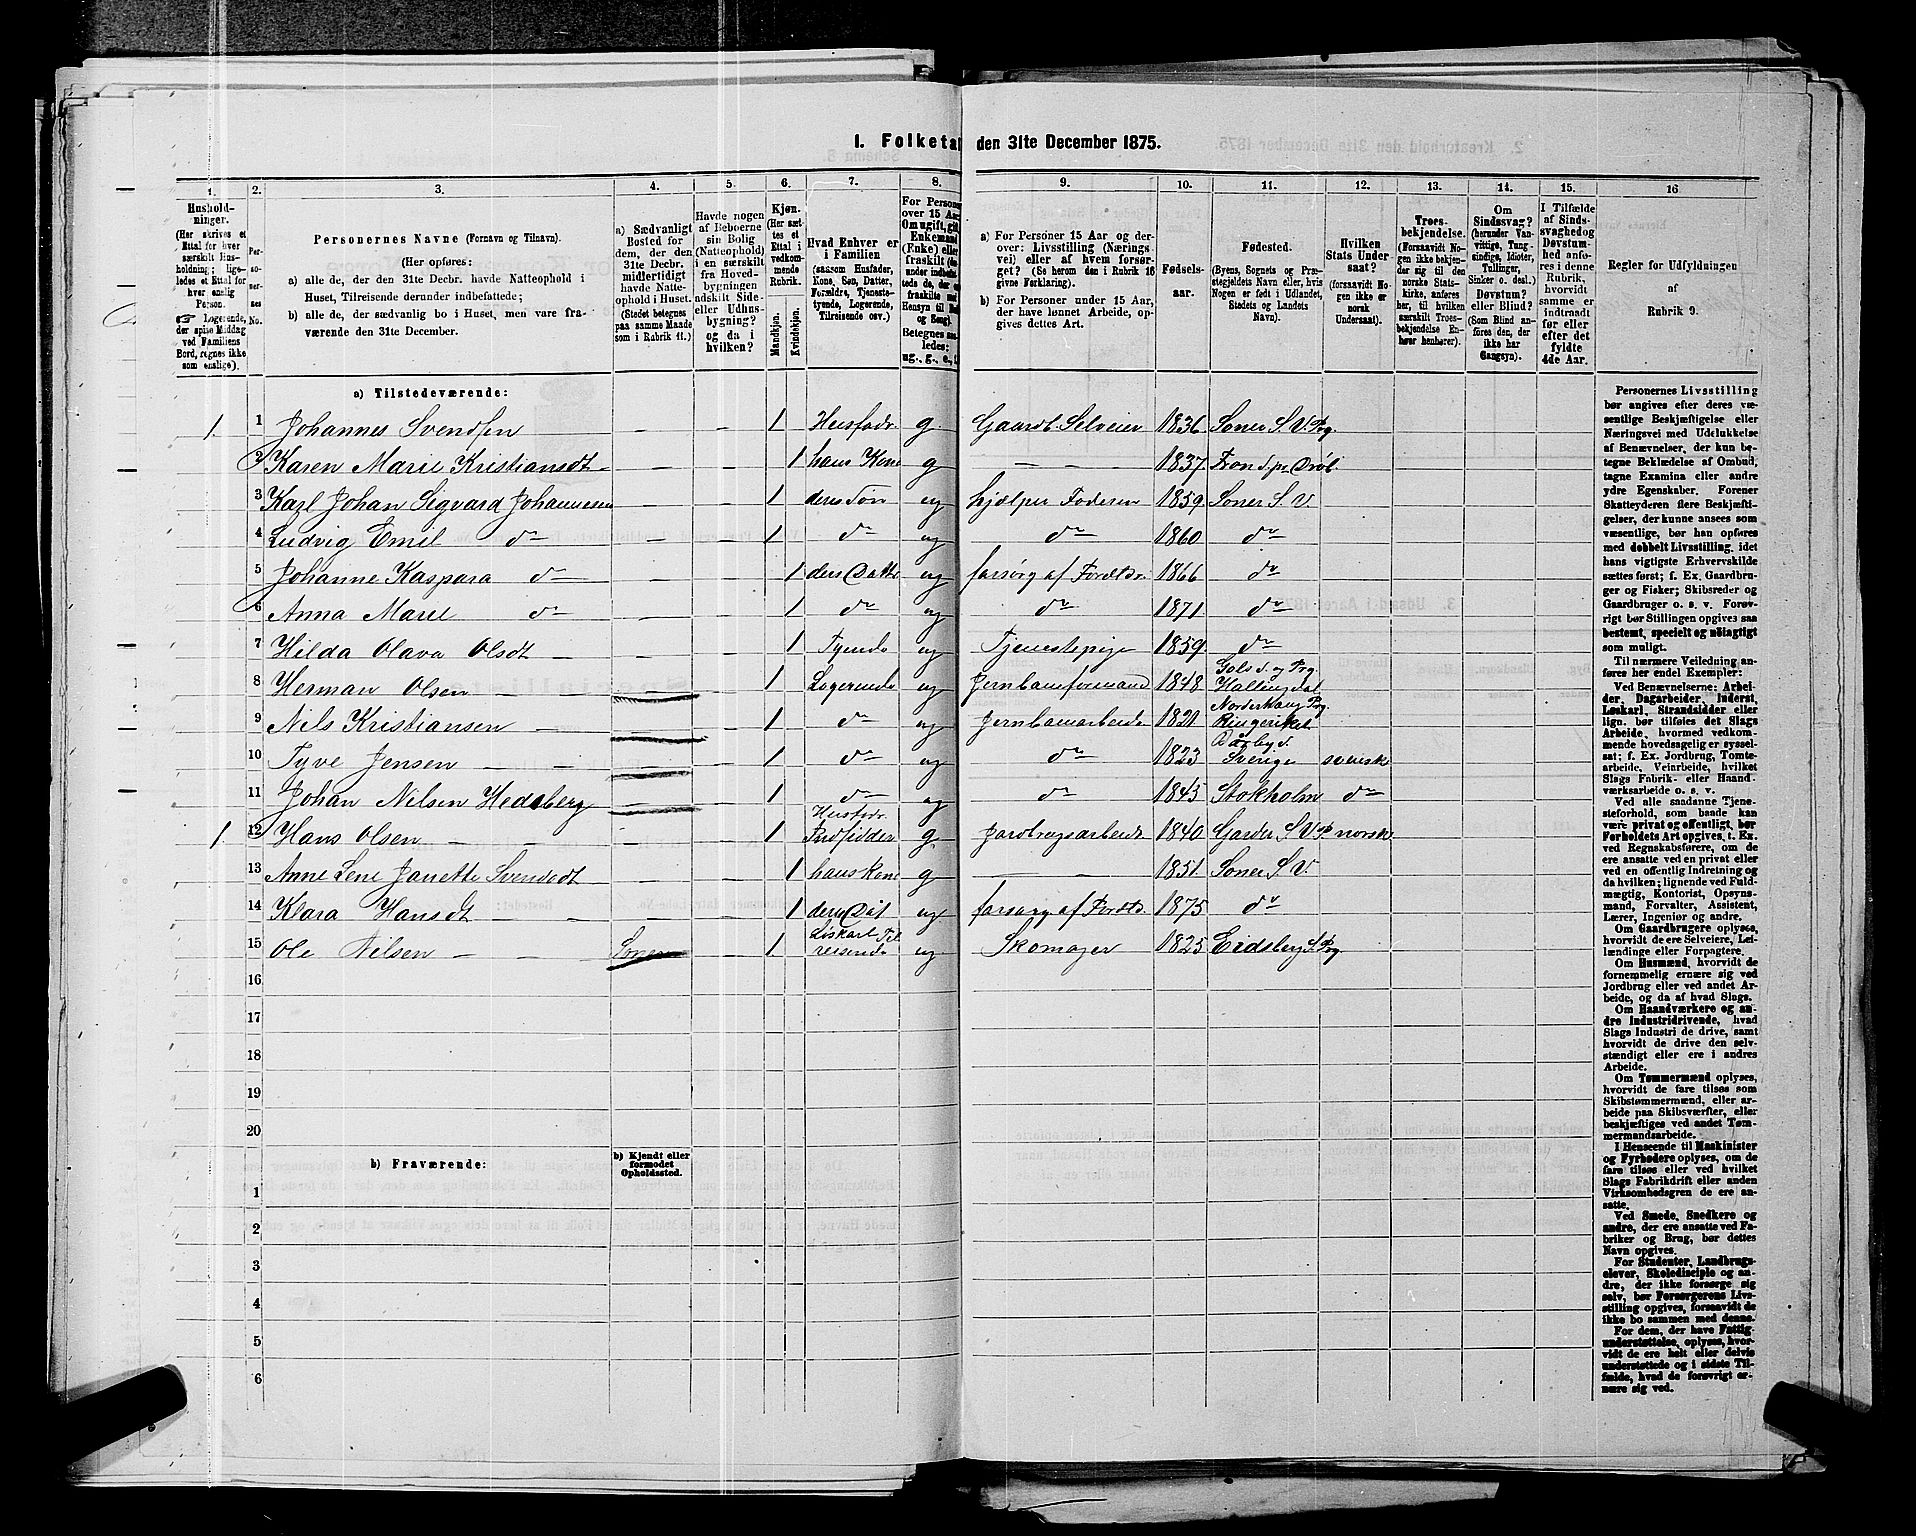 1. Folketal den 31te December 1875.
1. 2. 3. 4. 5. 6. 7. 8. 9. 10. 11. 12. 13. 14. 15. 16
Husholdninger.
(Her skrives et
Ettal for hver
særskilt Husholdning; ligeledes et Ettal for
hver enslig
Person.
☞ Logerende,
der spise Middag
ved Familiens
Bord, regnes ikke
som enslige).
Personernes No.
Personernes Navne (Fornavn og Tilnavn).
(Her opføres:
a) alle de, der den 31te Decbr. havde Natteophold i
Huset, Tilreisende derunder indbefattede;
b) alle de, der sædvanlig bo i Huset, men vare fraværende den 31te December.
a) Sædvanligt
Bosted for
dem, der den
31te Decbr.
midlertidigt
havde Natteophold i Huset.
(Stedet betegnes
paa samme Maade
som i Rubrik 11.)
Havde nogen
af Beboerne
sin Bolig
(Natteophold)
i en særskilt
fra Hovedbygningen
adskilt Side- eller Udhusbygning?
og da i
hvilken?
Kjøn.
(Her sættes et
Ettal i
vedkommende
Rubrik.
Mandkjøn.
Kvindekjøn.
Hvad Enhver er
i Familien
(saasom Husfader,
Kone, Søn, Datter,
Forældre, Tjenestetyende, Logerende,
Tilreisende osv.)
For Personer
over 15 Aar:
Om ugift, gift,
Enkemand
(Enke) eller
fraskilt
Betegnes saaledes:
ug., g., e., f.
a) For Personer 15 Aar og derover: Livsstilling (Næringsvei) eller af hvem forsørget? (Se herom den i Rubrik 16
givne Forklaring).
b) For Personer under 15 Aar,
der have lønnet Arbeide, opgives dettes Art.
Fødselsaar.
Fødested.
(Byens, Sognets og Præstegjeldets Navn eller, hvis
Nogen er født i Udlandet,
Stedets og Landets
Navn).
Hvilken
Stats Undersaat?
(forsaavidt Nogen ikke er
norsk
Undersaat).
Troesbekjendelse.
(Forsaavidt Nogen ikke bekjender sig til den
norske Statskirke, anføres
her, til hvilken
særskilt Troesbekjendelse Enhver henhører).
Om
Sindssvag?
(herunder Vanvittige, Tungsindige, Idioter,
Tullinger,
Sinker o. desl.)
Døvstum?
eller Blind?
(Som Blind anføres den, der
ikke har
Gangsyn).
I Tilfælde
af Sindssvaghed og
Døvstumhed anføres i denne
Rubrik,
hvorvidt
samme er
indtraadt
før eller
efter det
fyldte
4de Aar.
Regler for Udfyldningen
af
Rubrik 9.
a) Tilstedeværende:
1. 1 Johannes Svendsen — — 1 Husfadr. g. Gaardb. Selveier 1836. Soner S. V. Prg.
2 Karen Marie Kristiansdt — — 1 hans Kone g — — 1837.
3 Karl Johan Sigvard Johannesen — — 1 deres Søn ug hjælper Faderen 1859. Soner S. V.
4 Ludvig Emil do — — 1 do ug do 1860 do
5 Johanne Kaspara do — — 1 ders Datte ug forsørg af Forældr. 1866 do
6 Anna Marie do — — 1 do ug do 1871. do
7 Hilda Olava Olsdt — — — 1 Tyende ug Tjenestepige 1859. do
8 Herman Olsen — — 1 Logerende ug Jernbaneformand 1848 Gols S. og Prg. Hallingdal
9 Nils Kristiansen — — 1 do ug Jernbanearbeide 1821 Norderhaug Prg. Ringeriket
10 Tyve Jensen — — 1 do ug do 1823 Sverige svenske
11 Johan Nilsen Hedsberg — — 1 do ug do 1845 Stokholm do
1. 12 Hans Olsen — — 1 Husfadr. Indsidder g. Jordbrugsarbeide 1840 Garder S. V. P. norske
13 Anne Lene Janette Svendsdt — — 1 hans Kone g — 1851. Soner S. V.
14 Klara Hansdt — — 1 deres Dat ug forsørg af Forældr. 1875 do
15 Ole Nilsen — — Soner — 1 Løskarl Tilreisende ug Skomager 1825 Eidsberg S. Prg
16
17
18
19
20
b) Fraværende:
b) Kjendt eller
formodet
Opholdssted.
1
2
3
4
5
6
Personernes Livsstilling
bør angives efter deres væsentlige Beskjæftigelse eller
Næringsvei med Udelukkelse
af Benævnelser, der kun betegne Beklædelse af Ombud,
tagne Examina eller andre
ydre Egenskaber. Forener
Skatteyderen flere Beskjæftigelser, der kunne ansees som
væsentlige, bør han opføres
med dobbelt Livsstilling, idet
hans vigtigste Erhvervskilde
sættes først; f. Ex. Gaardbruger og Fisker; Skibsreder og
Gaardbruger o. s. v. Forøvrigt bør Stillingen opgives saa
bestemt, specielt og nøiagtigt
som muligt.
Til nærmere Veiledning anføres her endel Exempler:
Ved Benævnelserne: Arbeider, Dagarbeider, Inderst,
Løskarl, Strandsidder eller
lign. bør tilføies det Slags
Arbeide, hvormed vedkommende hovedsagelig er sysselsat; f. Ex. Jordbrug, Tomtearbeide, Veiarbeide, hvilket
Slags Fabrik- eller Haandværksarbeide o. s. v.
Ved alle saadanne Tjenesteforhold, som baade kan
være privat og offentligt, bør
Forholdets Art opgives, t. Ex.
ved Regnskabsførere, om de
ere ansatte ved en privat eller
ved en offentlig Indretning og
da hvilken; lignende ved Fuldmægtig, Kontorist, Opsynsmand, Forvalter, Assistent,
Lærer, Ingeniør og andre.
Om Gaardbrugere oplyses,
hvorvidt de ere Selveiere, Leilændinge eller Forpagtere.
Om Husmænd, hvorvidt de
fornemmelig ernære sig ved
Jordbrug eller ved andet Arbeide, og da af hvad Slags.
Om Haandværkere og andre Industridrivende, hvad
Slags Industri de drive, samt
hvorvidt de drive den selvstændigt eller ere i andres
Arbeide.
Om Tømmermænd oplyses,
hvorvidt de fare tilsøs som
Skibstømmermænd, eller arbeide paa Skibsværfter, eller
beskjæftiges ved andet Tømmermandsarbeide.
I Henseende til Maskinister
og Fyrbødere oplyses, om de
fare tilsøs eller ved hvilket
Slags Fabrikdrift eller anden
Virksomhedsgren de ere ansatte.
Ved Smede, Snedkere og
andre, der ere ansatte ved Fabriker og Brug, bør dettes
Navn opgives.
For Studenter, Landbrugselever, Skoledisciple og andre, der ikke forsørge sig
selv, bør Forsørgerens Livsstilling opgives, forsaavidt de
ikke bo sammen med denne.
For dem, der have Fattigunderstøttelse, oplyses, hvorvidt de ere helt eller delvis
understøttede og i sidste Tilfælde, hvad de forøvrigt ernære sig ved.